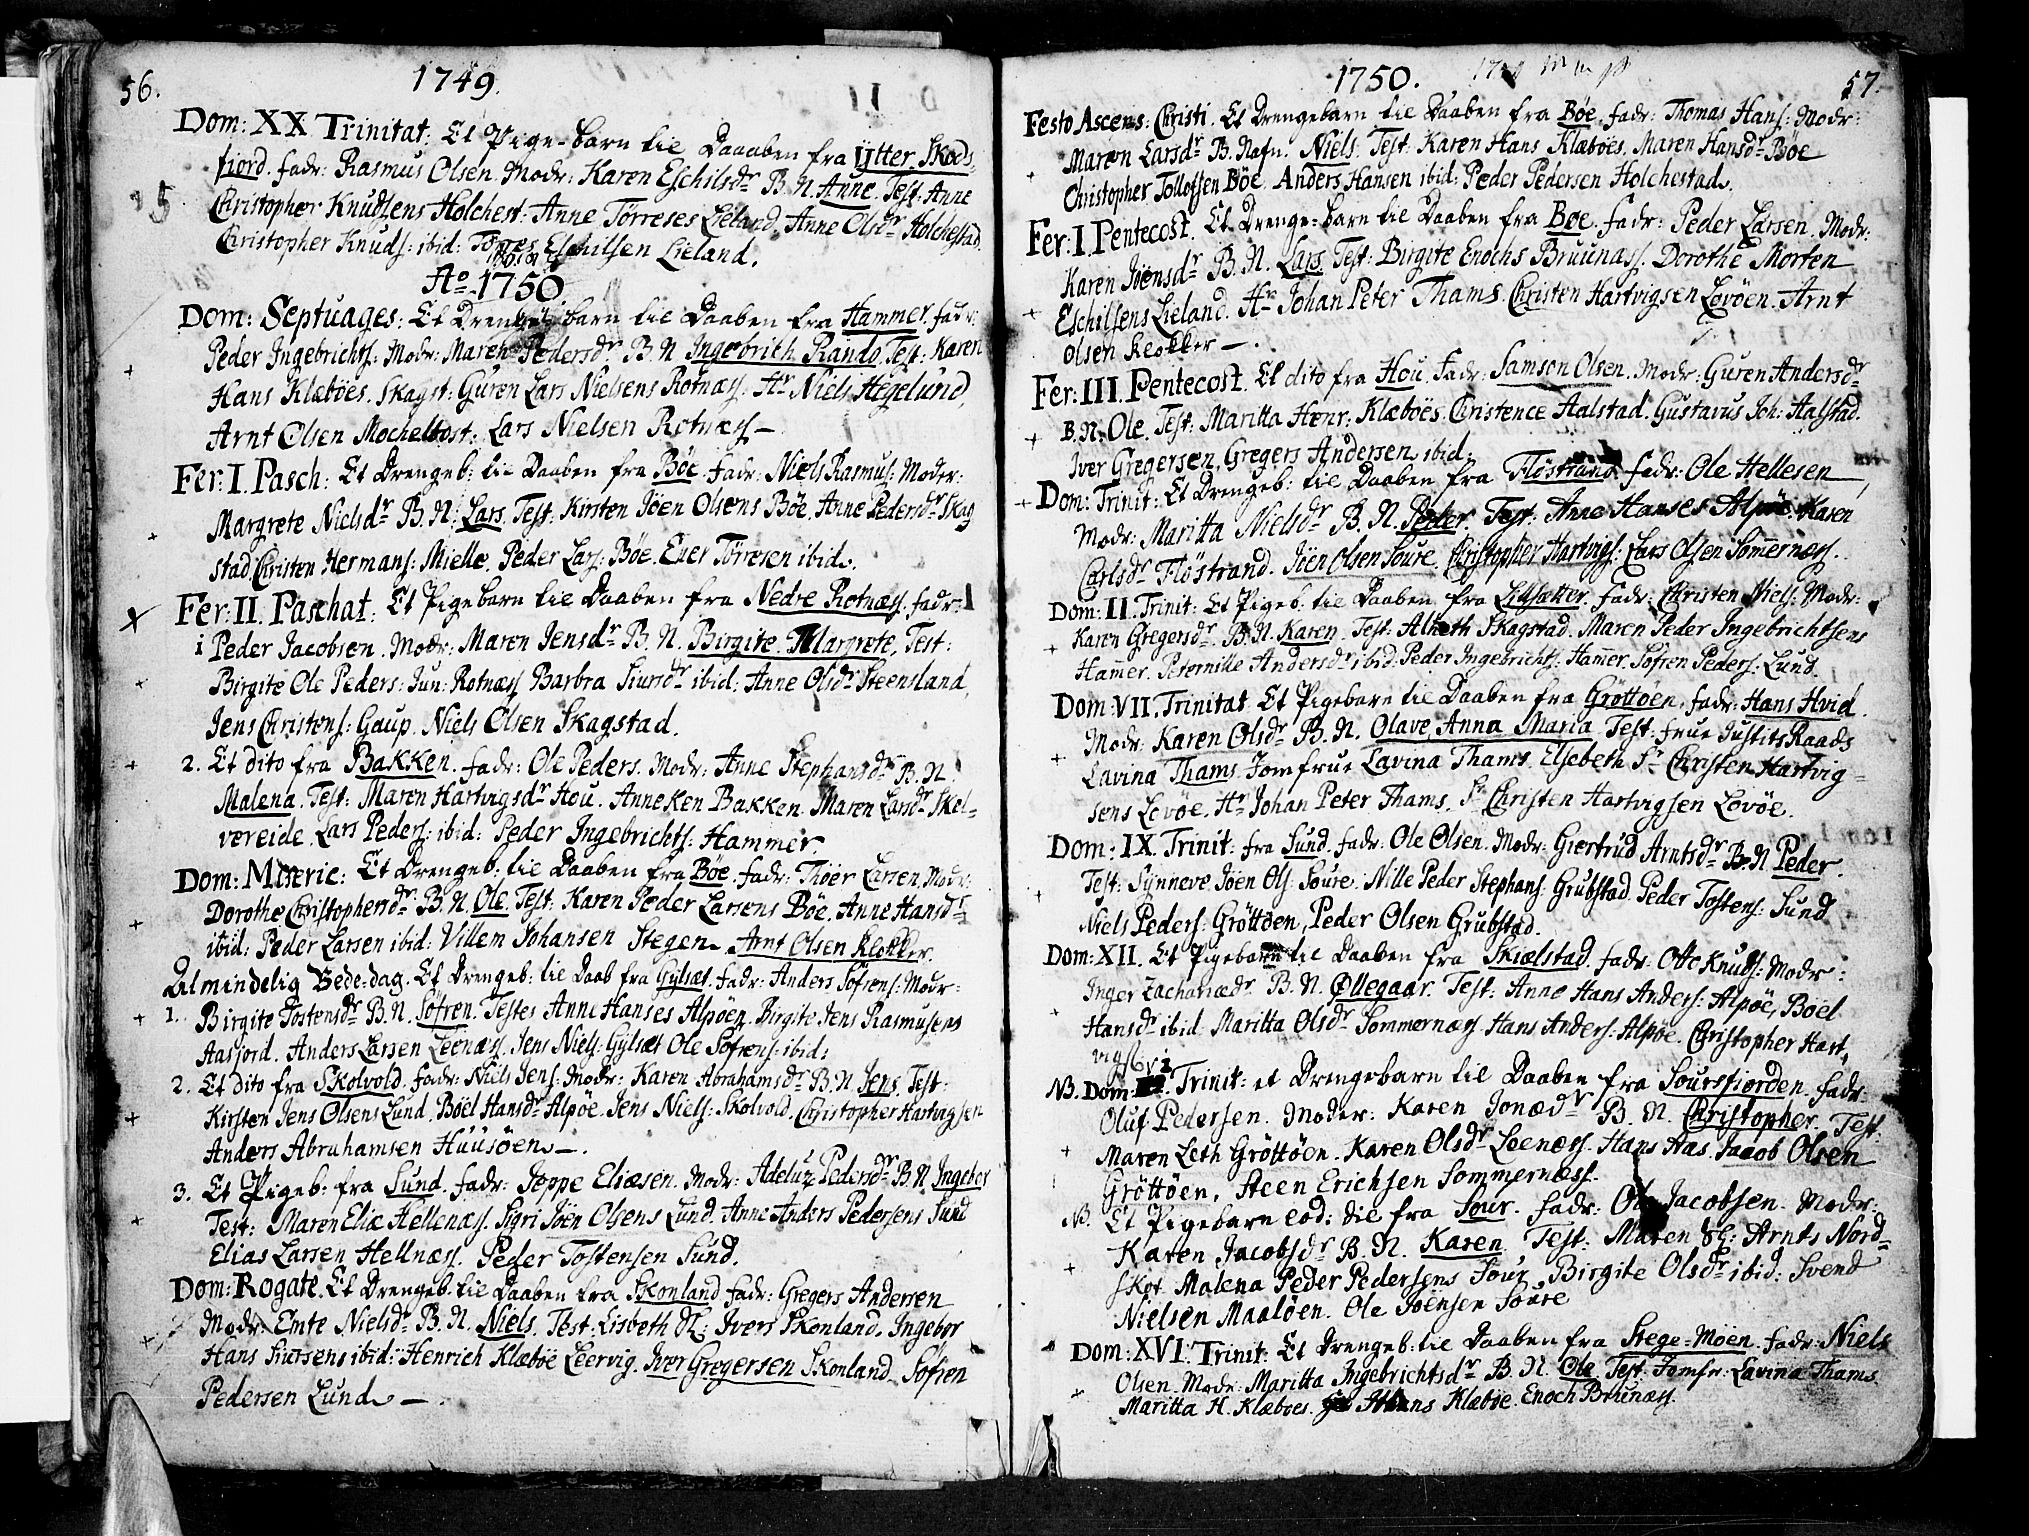 56.
1749.
Dom: XX Trinitat: Et Pige-barn til Daaaben fra Ÿtter Skods
fiord. fadr: Rasmus Olsen. Modr: Karen Eschilsdr B. N. Anne. Test: Anne
Christopher Knudsens Holchest: Anne Törreses Lieland. Anne Olsdr Holchestad.
Christopher Knuds: ibid: Eschilsen Lieland.
Ao 1750
Dom: Septuages: Et Drenge barn til Daaben fra Hammer. fadr:
Peder Ingebrichts: Modr: Maren Pedersdr B. N. Ingebrith Rando. Test: Karen
Hans Klæböes. Skagst: Guren Lars Nielsens Rotnæss. Hr Niels Hegelund,
Arnt Olsen Mochelbost: Lars Nielsen Rotnæss —
Fer: I. Pasch: Et Drengeb: til Daaben fra Böe. Fadr: Niels Rasmus: Moder:
Margrete Nielsdr B. N. Lars. Test: Kirsten Jöen Olsens Böe. Anne Pedersdr Skag
stad. Christen Hermans: Mielle. Peder Lars: Böe. Ever Törresen ibid.
Fer: II. Paschat: Et Pigebarn til Daaben fra Nedre Rotnæss. fadr:
1 Peder Jacobsen. Modr: Maren Jensdr B. N. Birgite Margrete. Test:
Birgite Ole Peders: Jun: Rotnæss Barbra Siursdr ibid: Anne Olsdr Steensland,
Jens Christens: Gaup. Niels Olsen Skagstad.
2. Et dito fra Bakken. fadr: Ole Peders. Modr: Anne Stephansdr B. N.
Malena. Test: Maren Hartvigsdr Hou. Anneken Bakken. Maren Larsdr Skel-
vereide. Lars Peders: ibid: Peder Ingebrichts: Hammer.
Dom: Miseric: Et Drengeb: til Daaben fra Böe. fadr: Thöer Larsen. Modr:
Dorothe Christophersdr B. N. Ole. Test: Karen Peder Larsens Böe. Anne Hansdr
ibid: Peder Larsen ibid: Villem Johansen Stegen. Arnt Olsen Klokker.
Almindelig Bede-dag. Et Drengeb: til Daab fra Gylset. fadr: Anders Söfrens: Modr:
1. Birgite Tostensdr B. N. Söfren. Testes Anne Hanses Alpöen. Birgite Jens Rasmusens
Aasjord. Anders Larsen Leenæss. Jens Niels: Gylset Ole Söfrens: ibid:
2. Et dito fra Skolvold. fadr: Niels Jens: Modr: Karen Abrahamsdr B. N. Jens. Test:
Kirsten Jens Olsens Lund. Böel Hansdr Alpöe. Jens Niels: Skolvold. Christopher Hartvigsen
Anders Abrahamsen Huusöen —.
3. Et Pigeb: fra Sund. fadr: Joppe Eliæsen. Modr: Adeluz Pedersdr B. N. Ingebor
Test: Maren Eliæ Hellenæss. Sigri Jöen Olsens Lund. Anne Anders Pedersens Sund
Elias Larsen Hellnæss. Peder Tostensen Sund.
Dom: Rogate. Et Drengeb: til Daaben fra Skonland fadr: Gregers Andersen
Modr: Emte Nielsdr B. N. Niels. Test: Lisbeth Sl: Ivers Skonland. Ingebor
Hans Siursens ibid: Henrich Klæböe Leervig. Iver Gregersen Skonland. Söfren
Pedersen Lund —.
1750.
57.
Festo Ascens: Christi. Et Drengebarn til Daaben fra Böe. fadr: Thomas Hans: Modr:
Maren Larsdr B. Nafn. Niels. Test: Karen Hans Klæböes. Maren Hansdr Böe
Christopher Tollofsen Böe. Anders Hansen ibid: Peder Pedersen Holchestad.
Fer: I. Pentecost. Et Drenge-barn til Daaben fra Böe. fadr: Peder Larsen. Modr:
Karen Jöensdr B. N. Lars. Test: Birgite Enochs Bruunæss. Dorothe Morten
Eschilsens Lieland. Hr Johan Peter Thams. Christen Hartvigsen Lovöen. Arnt
Olsen Klokker —.
Fer: III. Pentecost. Et dito fra Hou. Fadr: Samson Olsen. Modr: Guren Andersdr
B. N. Ole. Test: Maritta Henr: Klæböes. Christence Aalstad. Gustavus Joh: Aalstad.
Iver Gregersen. Gregers Andersen ibid:
Dom: Trinit: Et Drengeb: til Daaben fra Flöstrand. fadr: Ole Hellesen,
Modr: Maritta Nielsdr B. N. Peder. Test: Anne Hanses Alpöe. Karen
Carlsdr Flöstrand. Jöen Olsen Soure. Christopher Hartvigs: Lars Olsen Sommernæss.
Dom: II. Trinit: Et Pigeb: til Daaben fra Lilsætter. fadr: Christen Niels. Modr:
Karen Gregersdr. B. N. Karen. Test: Skagstad. Maren Peder Ingebrichtsens
Hamer. Peternille Andersdr ibid: Peder Ingebrichts: Hamer. Söfren Peders: Lund.
Dom: VII. Trinitat. Et Pigebarn til Daaben fra Gröttöen. fadr: Hans Hvid.
Modr: Karen Olsdr B. N. Olave Anna Maria. Test: frue Justits Raads
Lavina Thams. Jomfrue Lavina Thams. Elsebeth Sr Christen Hartvig-
sens Lovöe. Hr Johan Peter Thams. Sr Christen Hartvigsen Lovöe.
Dom: IX. Trinit: fra Sund. fadr: Ole Olsen. Modr: Giertrud Arntsdr B. N. Peder.
Test: Synneve Jöen Ols: Soure. Nille Peder Stephans: Grubstad. Peder Tostens: Sund
Niels Peders: Gröttöen, Peder Olsen Grubstad.
Dom: XII. Et Pigebarn til Daaben fra Skiælstad. fadr: Otto Knuds: Modr:
Inger Zachariædr. B. N. Ollegaar. Test: Anne Hans Anders: Alpöe, Böel
Hansdr ibid. Maritta Olsdr Sommernæss. Hans Anders: Alpöe. Christopher Hart,
NB. Dom: Trinit: et Drengebarn til Daaben fra Soursfiorden. fadr:
Oluf Pedersen. Moder: Karen Jonædr B. N. Christopher. Test:
Maren Leth Gröttöen. Karen Olsdr Leenæss. Hans Aas. Jacob Olsen
Gröttöen, Steen Erichsen Sommernæss.
NB. Et Pigebarn eod: die fra Sour. fadr: Ole Jacobsen. Modr:
Karen Jacobsdr B. N. Karen. Test: Maren Sl: Arnts Nord-
skot Malena Peder Pedersens Sour. Birgite Olsdr ibid: Svend
Nielsen Maalöen. Ole Jöensen Soure
Dom: XVI. Trinit: Et Drengeb: til Daaben fra Stege-Möen. fadr: Niels
Olsen. Modr: Maritta Ingebrichtsdr B. N. Ole. Test: Jomfr: Lavina Thams.
Maritta H. Klæboes. Hans Klæböe. Enoch Brunæss.